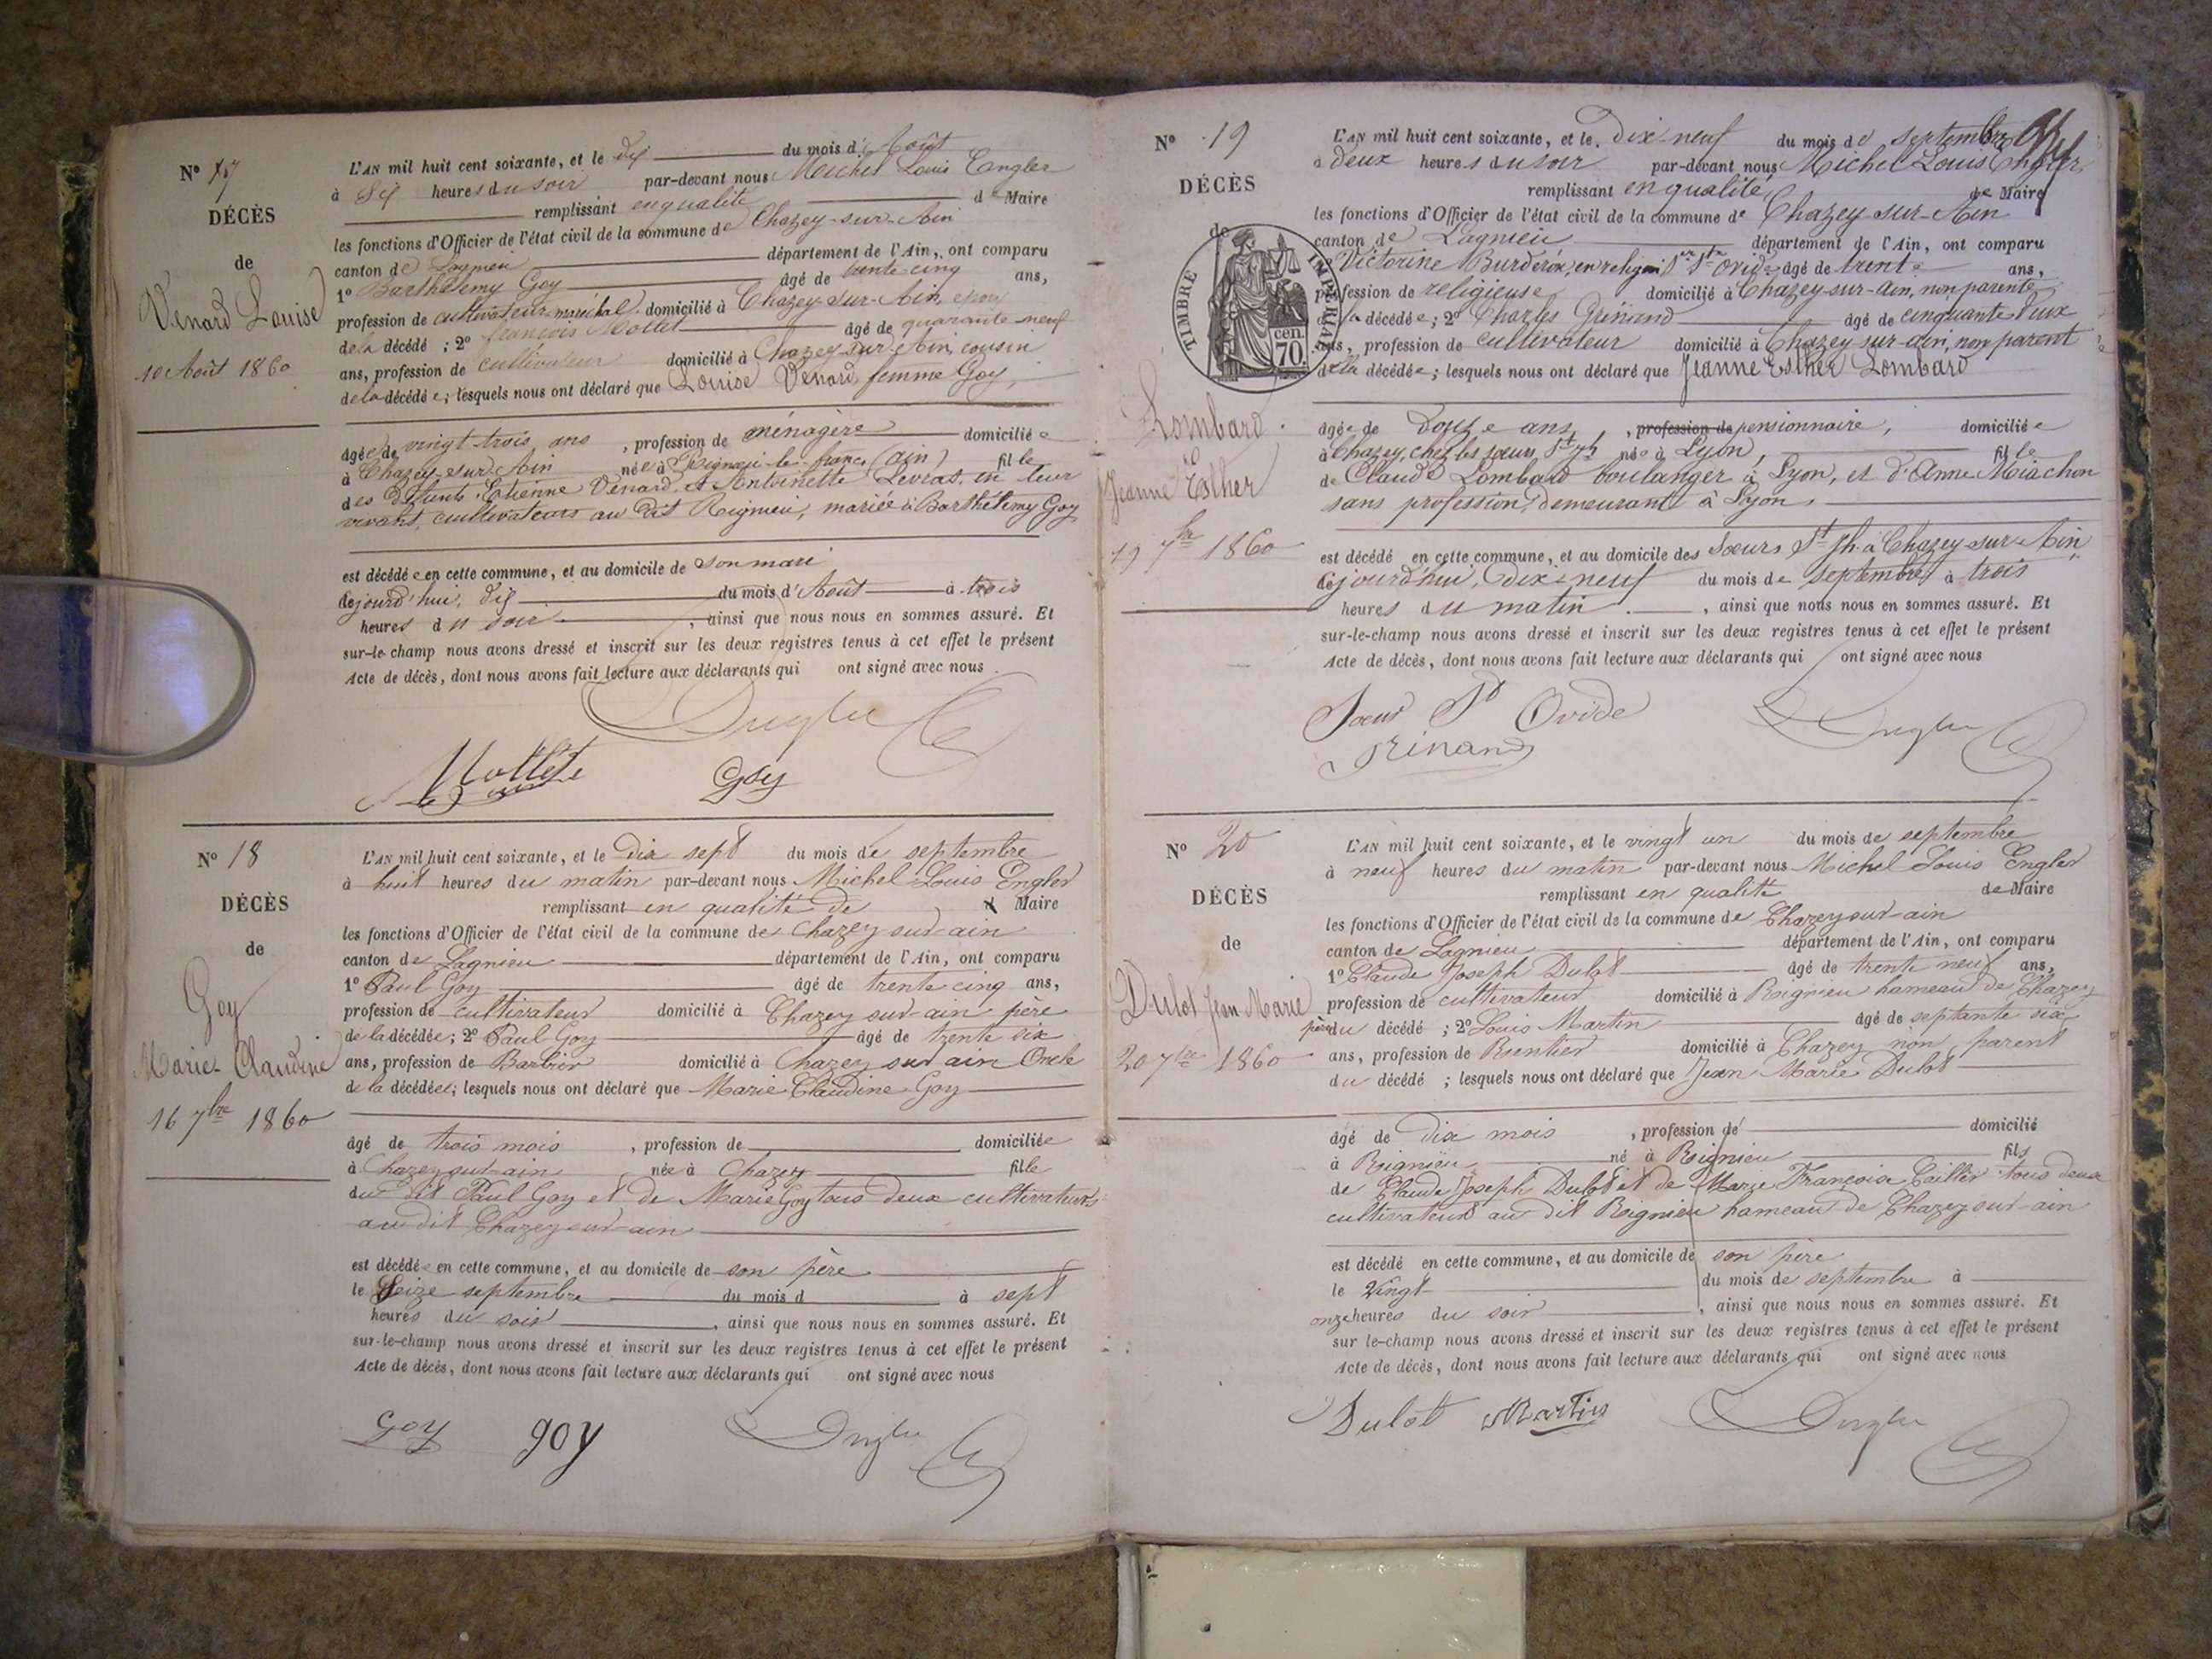 N° 17
DÉCÈS
de
Venard Louise
10 Août 1860
L'AN mil huit cent soixante, et le dix du mois d'Août
à six heures du soir par-devant nous Michel Louis Engler
remplissant en qualité de Maire
les fonctions d'Officier de l'état civil de la commune de Chazey-sur-Ain
canton de Lagnieu département de l'Ain, ont comparu
1° Barthélemy Goy âgé de trente-cinq ans,
profession de cultivateur maréchal domicilié à Chazey-sur-Ain, époux
de la décédé ; 2° françois Mollet âgé de quarante-neuf
ans, profession de cultivateur domicilié à Chazey-sur-Ain, cousin
de la décédée; lesquels nous ont déclaré que Louise Venard femme Goy,
âgée de vingt-trois ans, profession de ménagère domiciliée
à Chazey-sur-Ain née à (ain) fille
des défunts Etienne Venard et Antoinette Levras, en leur
vivant, cultivateurs au dit Rignieu, mariée à Barthélemy Goy
est décédée en cette commune, et au domicile de son mari
cejourd'hui, dix du mois d'Août à trois
heures du soir, ainsi que nous nous en sommes assuré. Et
sur-le-champ nous avons dressé et inscrit sur les deux registres tenus à cet effet le présent
Acte de décès, dont nous avons fait lecture aux déclarants qui ont signé avec nous
Engler
Mollet Goy
N° 18
DÉCÈS
de
Goy
Marie Claudine
16 7bre 1860
L'AN mil huit cent soixante, et le dix sept du mois de septembre
à huit heures du matin par-devant nous Michel Louis Engler
remplissant en qualité de Maire
les fonctions d'Officier de l'état civil de la commune de Chazey sur ain
canton de Lagnieu département de l'Ain, ont comparu
1° Paul Goy âgé de trente cinq ans,
profession de cultivateur domicilié à Chazey sur ain père
de la décédée; 2° Paul Goy âgé de trente six
ans, profession de Barbier domicilié à Chazey sur ain Oncle
de la décédée; lesquels nous ont déclaré que Marie Claudine Goy
âgé de trois mois, profession de domiciliée
à Chazey sur ain née à Chazey fille
du dit Paul Goy et de Marie Goy tous deux cultivateurs
au dit Chazey sur ain
est décédée en cette commune, et au domicile de son père
le Seize septembre du mois d à sept
heures du soir, ainsi que nous nous en sommes assuré. Et
sur-le-champ nous avons dressé et inscrit sur les deux registres tenus à cet effet le présent
Acte de décès, dont nous avons fait lecture aux déclarants qui ont signé avec nous
Goy goy Engler
N° 19
DÉCÈS
de
TIMBRE IMPÉRIAL
70 cen.
Lombard
Jeanne Esther
19 7bre 1860
L'AN mil huit cent soixante, et le Dix-neuf du mois de septembre
à deux heures du soir par-devant nous Michel Louis Engler
remplissant en qualité de Maire
les fonctions d'Officier de l'état civil de la commune de Chazey-sur-Ain
canton de Lagnieu département de l'Ain, ont comparu
Victorine Burderon, en religion Sr St Ovide âgé de trente ans,
profession de religieuse domicilié à Chazey-sur-ain, non parente
de la décédée; 2° Charles Grinand âgé de cinquante deux
ans, profession de cultivateur domicilié à Chazey-sur-ain, non parent
de la décédée; lesquels nous ont déclaré que Jeanne Esther Lombard
âgée de Douze ans, profession de pensionnaire, domiciliée
à Chazey, chez les sœurs St Jh née à Lyon, fille
de Claude Lombard boulanger à Lyon, et d'Anne Miachon
sans profession, demeurant à Lyon,
est décédé en cette commune, et au domicile des Sœurs St Jh. à Chazey-sur-Ain
cejourd'hui, dix-neuf du mois de septembre à trois
heures du matin, ainsi que nous nous en sommes assuré. Et
sur-le-champ nous avons dressé et inscrit sur les deux registres tenus à cet effet le présent
Acte de décès, dont nous avons fait lecture aux déclarants qui ont signé avec nous
Sœur St Ovide Engler
Grinand
N° 20
DÉCÈS
de
Dulot Jean Marie
20 7bre 1860
L'AN mil huit cent soixante, et le vingt un du mois de septembre
à neuf heures du matin par-devant nous Michel Louis Engler
remplissant en qualité de Maire
les fonctions d'Officier de l'état civil de la commune de Chazey sur ain
canton de Lagnieu département de l'Ain, ont comparu
1° Claude Joseph Dulot âgé de trente neuf ans,
profession de cultivateur domicilié à Rignieu hameau de Chazey
père du décédé ; 2° Louis Martin âgé de septante six
ans, profession de Rentier domicilié à Chazey non parent
du décédé ; lesquels nous ont déclaré que Jean Marie Dulot
âgé de dix mois, profession de domicilié
à Rignieu né à Rignieu fils
de Claude Joseph Dulot et de Marie Françoise Caillet tous deux
cultivateurs au dit Rignieu hameau de Chazey sur ain
est décédé en cette commune, et au domicile de son père
le vingt du mois de septembre à
onze heures du soir, ainsi que nous nous en sommes assuré. Et
sur le-champ nous avons dressé et inscrit sur les deux registres tenus à cet effet le présent
Acte de décès, dont nous avons fait lecture aux déclarants qui ont signé avec nous
Dulot Martin Engler